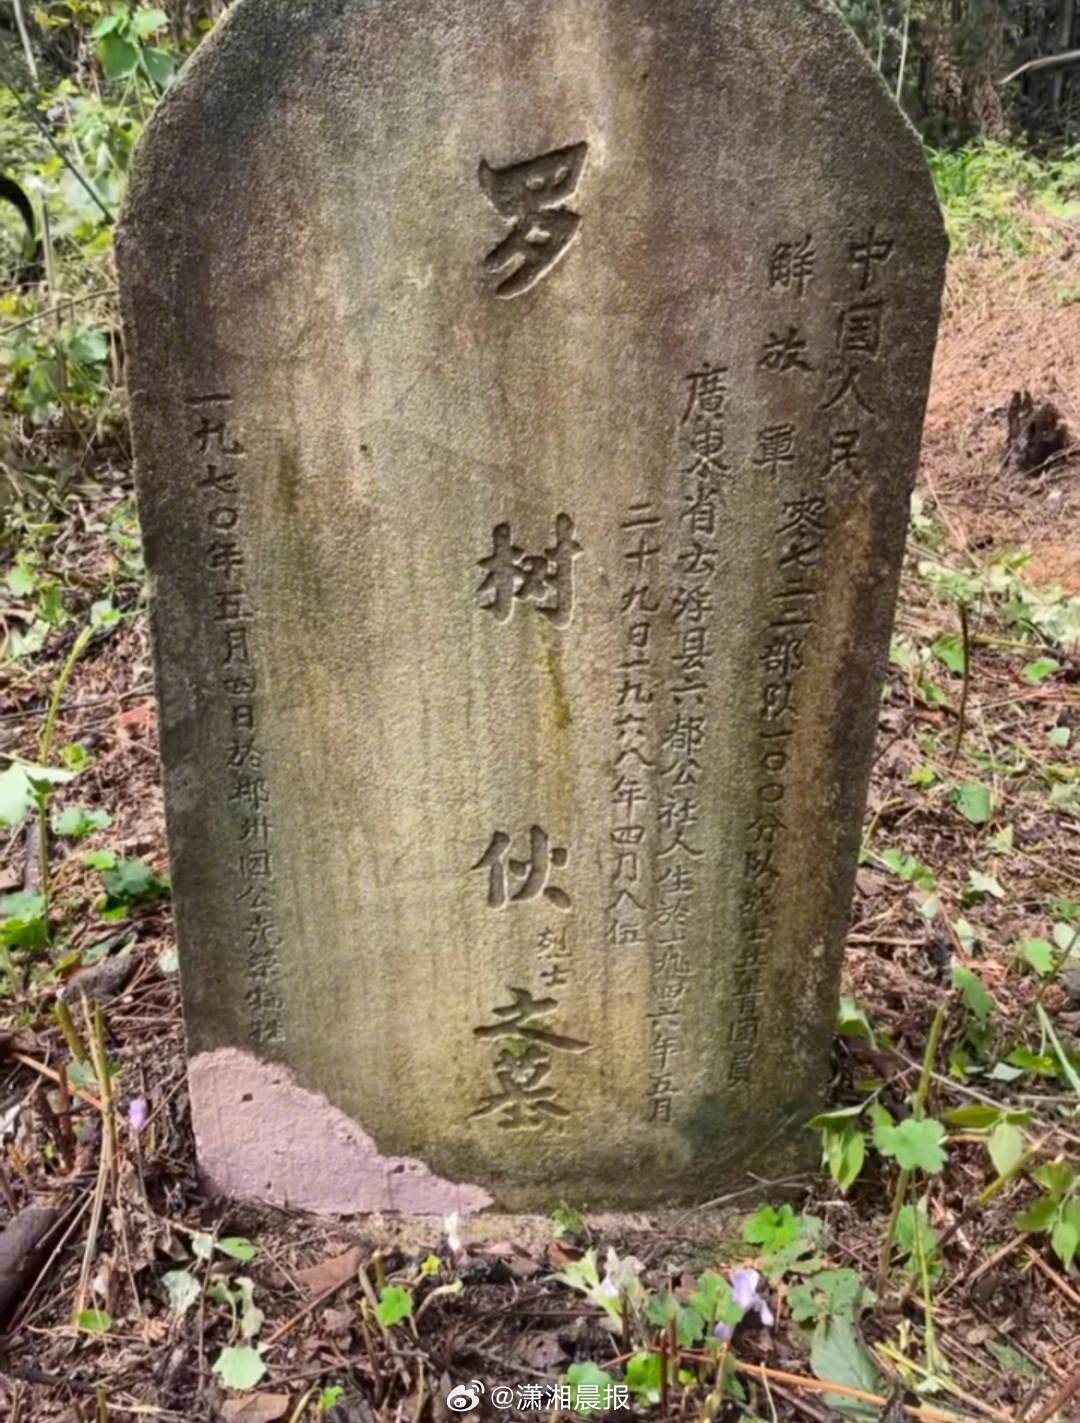 中国人民
解放軍
零七二二部队一〇〇分队战士共青团員
廣東省云浮县六都公社人生於一九四六年五月
二十九日一九六八年四月入伍
罗树伙烈士之墓
一九七〇年五月四日於郴州因公光荣牺牲
@潇湘晨报